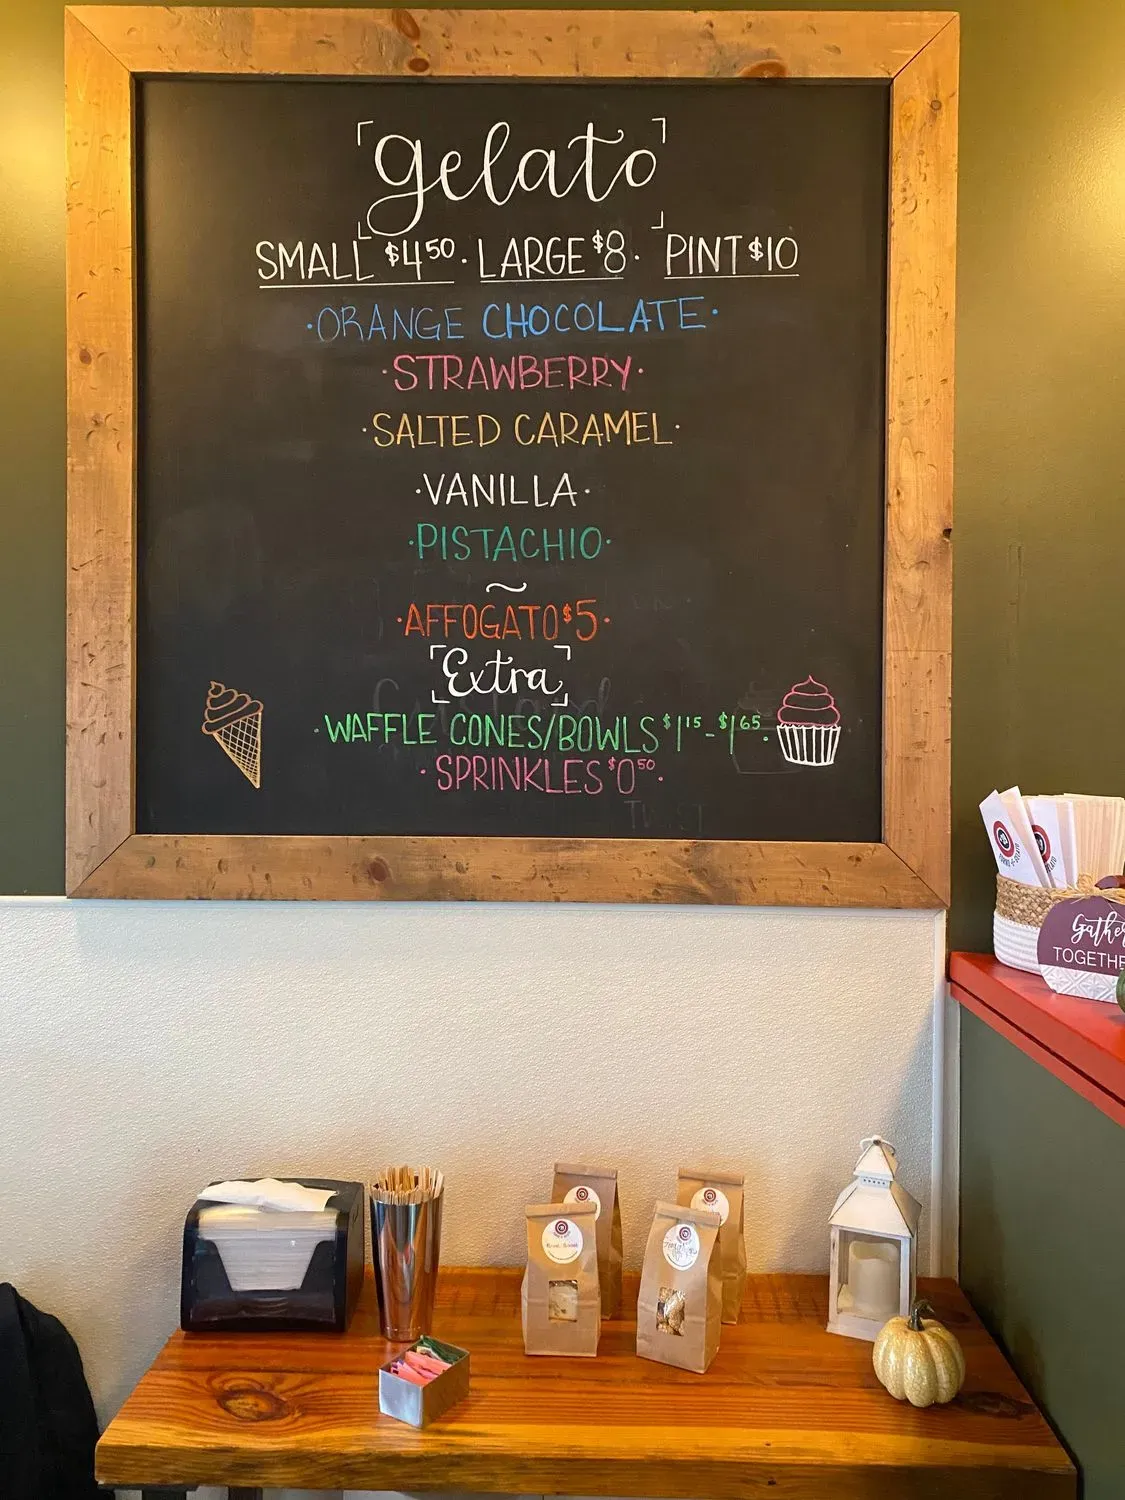 gelato
SMALL $4.50 · LARGE $8 · PINT $10
· ORANGE CHOCOLATE ·
· STRAWBERRY ·
· SALTED CARAMEL ·
· VANILLA ·
· PISTACHIO ·
~
· AFFOGATO $5 ·
Extra
· WAFFLE CONES/BOWLS $1.15 - $1.65 ·
· SPRINKLES $0.50 ·
Gather
TOGETHE